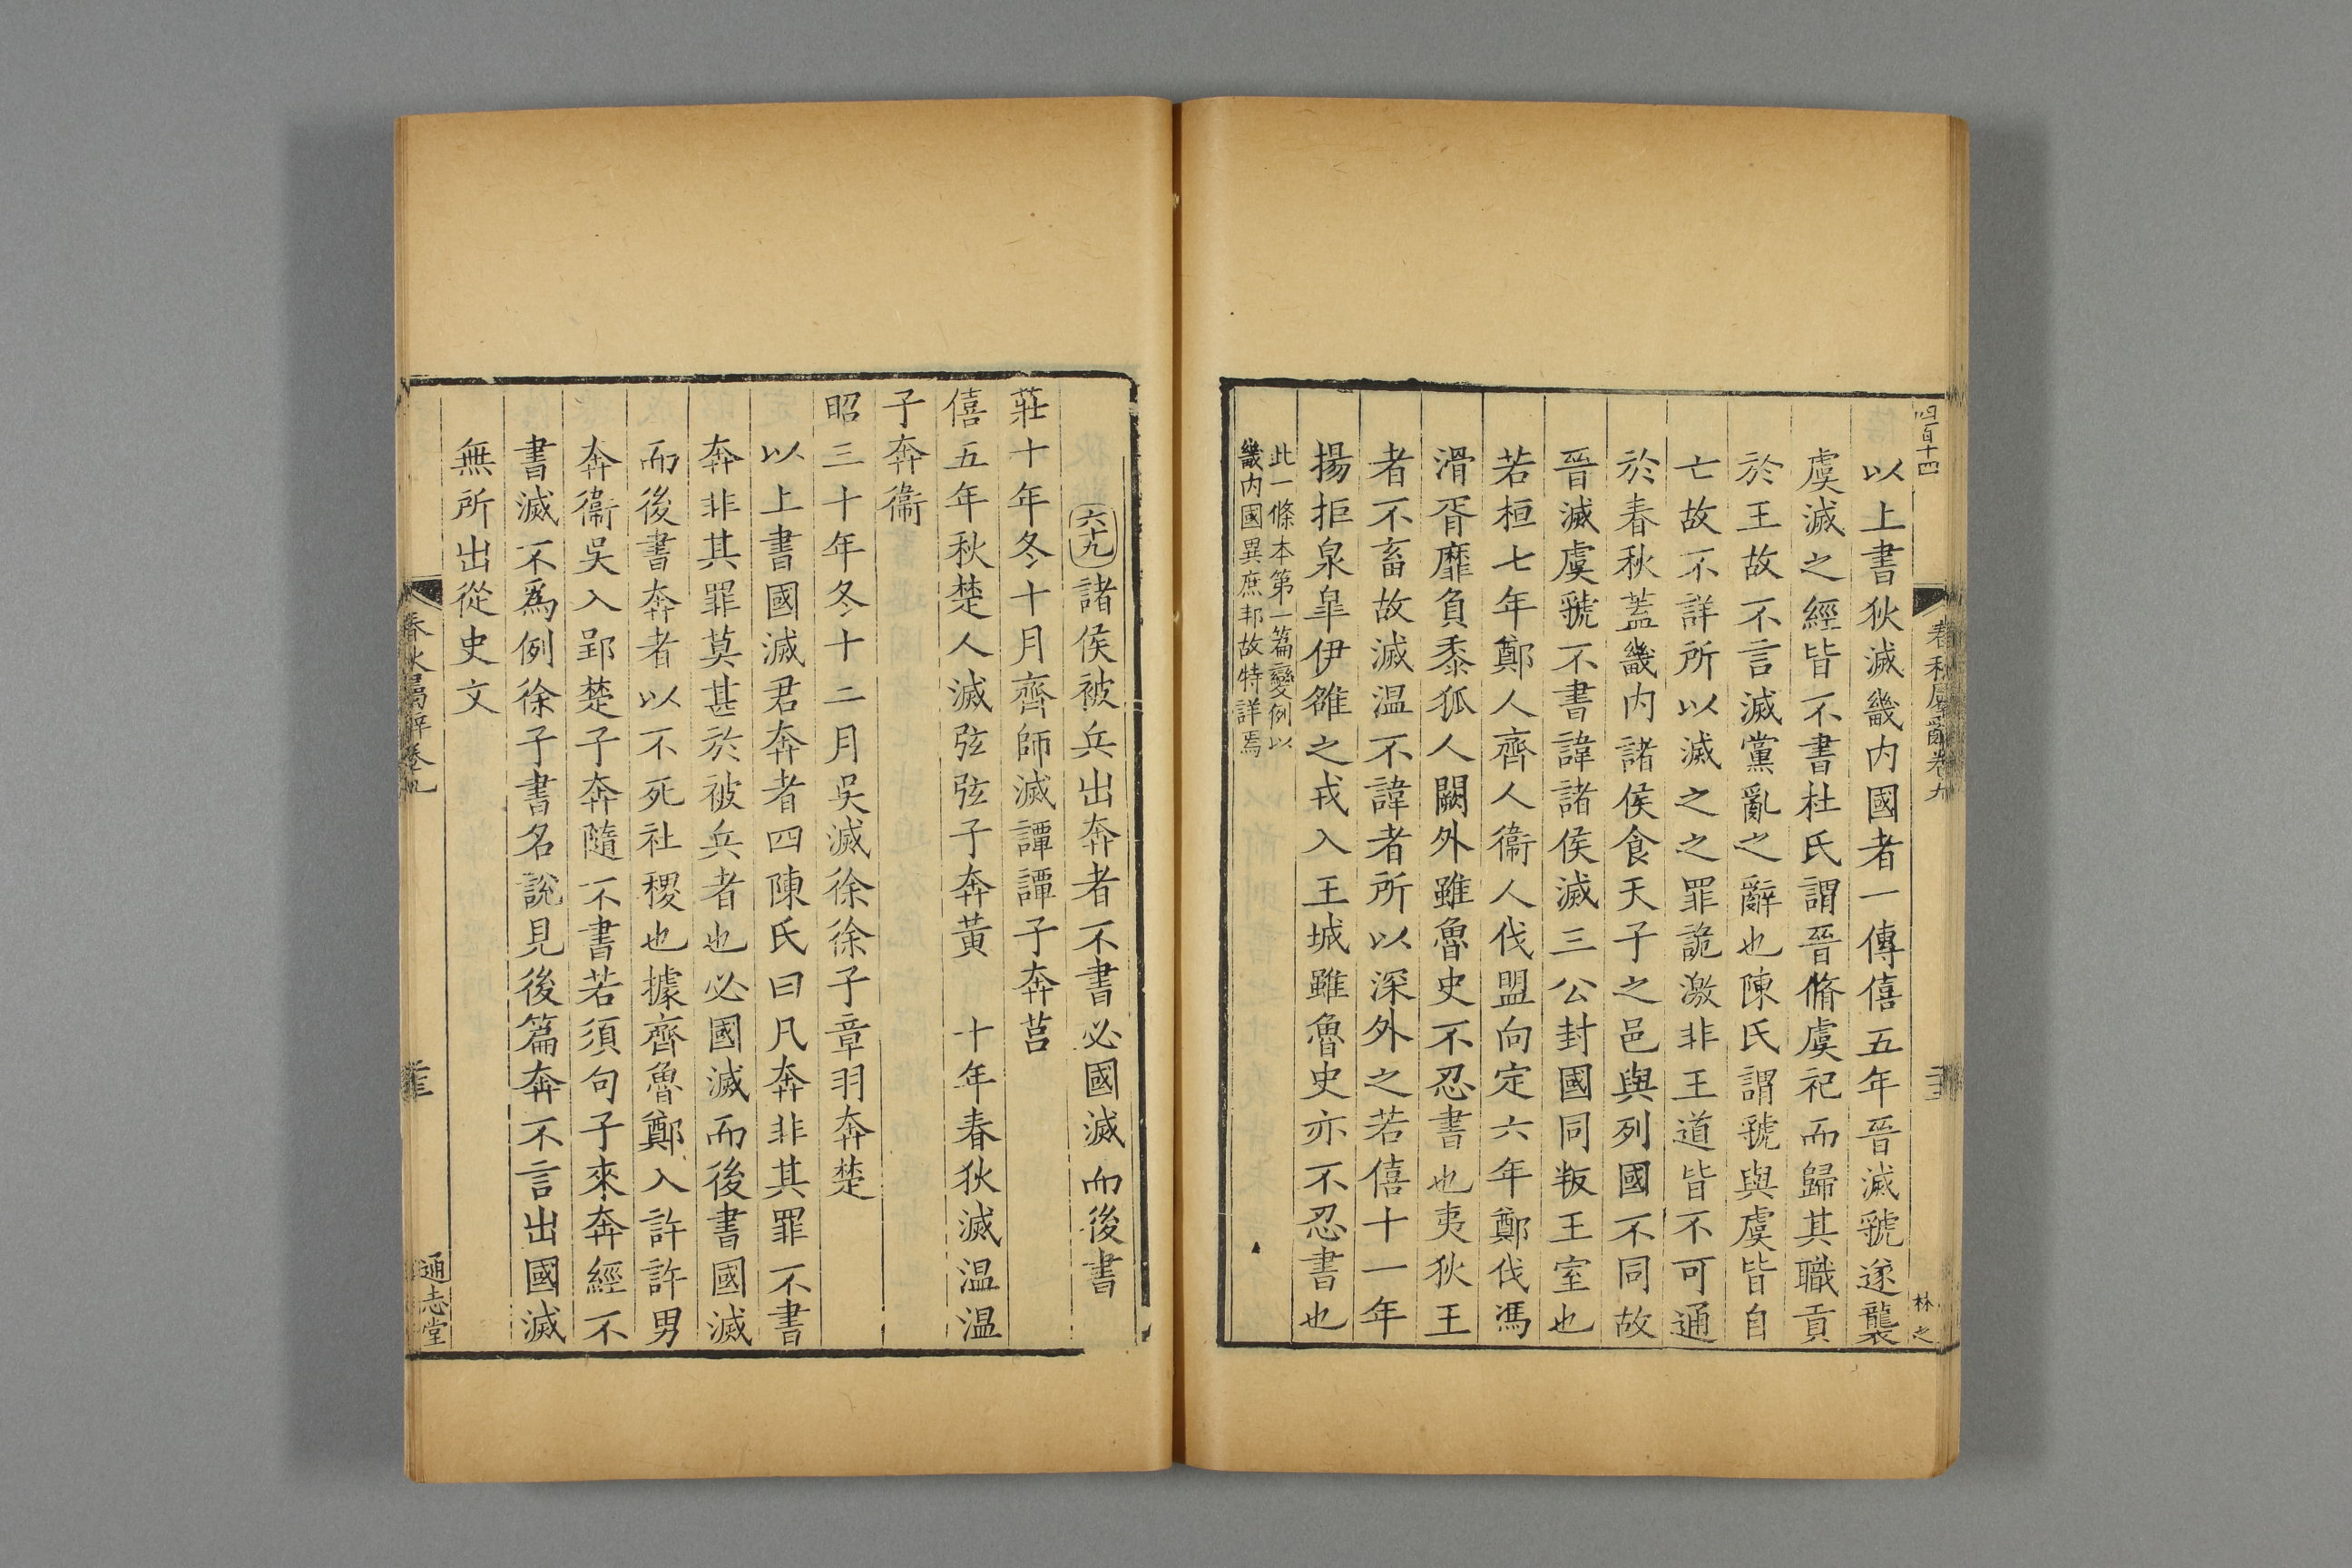 四百十四
春秋屬辭卷九
林之
以上書狄滅畿内國者一傳僖五年晉滅虢遂襲
虞滅之經皆不書杜氏謂晉脩虞祀而歸其職貢
於王故不言滅黨亂之辭也陳氏謂虢與虞皆自
亡故不詳所以滅之之罪詭激非王道皆不可通
於春秋蓋畿内諸侯食天子之邑與列國不同故
晉滅虞虢不書諱諸侯滅三公封國同叛王室也
若桓七年鄭人齊人衞人伐盟向定六年鄭伐馮
滑胥靡負黍狐人闕外雖魯史不忍書也夷狄王
者不畜故滅温不諱者所以深外之若僖十一年
揚拒泉臯伊雒之戎入王城雖魯史亦不忍書也
此一條本第一篇變例以
畿内國異庶邦故特詳焉
六十九諸侯被兵出奔者不書必國滅而後書
莊十年冬十月齊師滅譚譚子奔莒
僖五年秋楚人滅弦弦子奔黃 十年春狄滅温温
子奔衞
昭三十年冬十二月吳滅徐徐子章羽奔楚
以上書國滅君奔者四陳氏曰凡奔非其罪不書
奔非其罪莫甚於被兵者也必國滅而後書國滅
而後書奔者以不死社稷也據齊魯鄭入許許男
奔衞吳入郢楚子奔隨不書若須句子來奔經不
書滅不爲例徐子書名說見後篇奔不言出國滅
無所出從史文
春秋屬辭卷九
通志堂